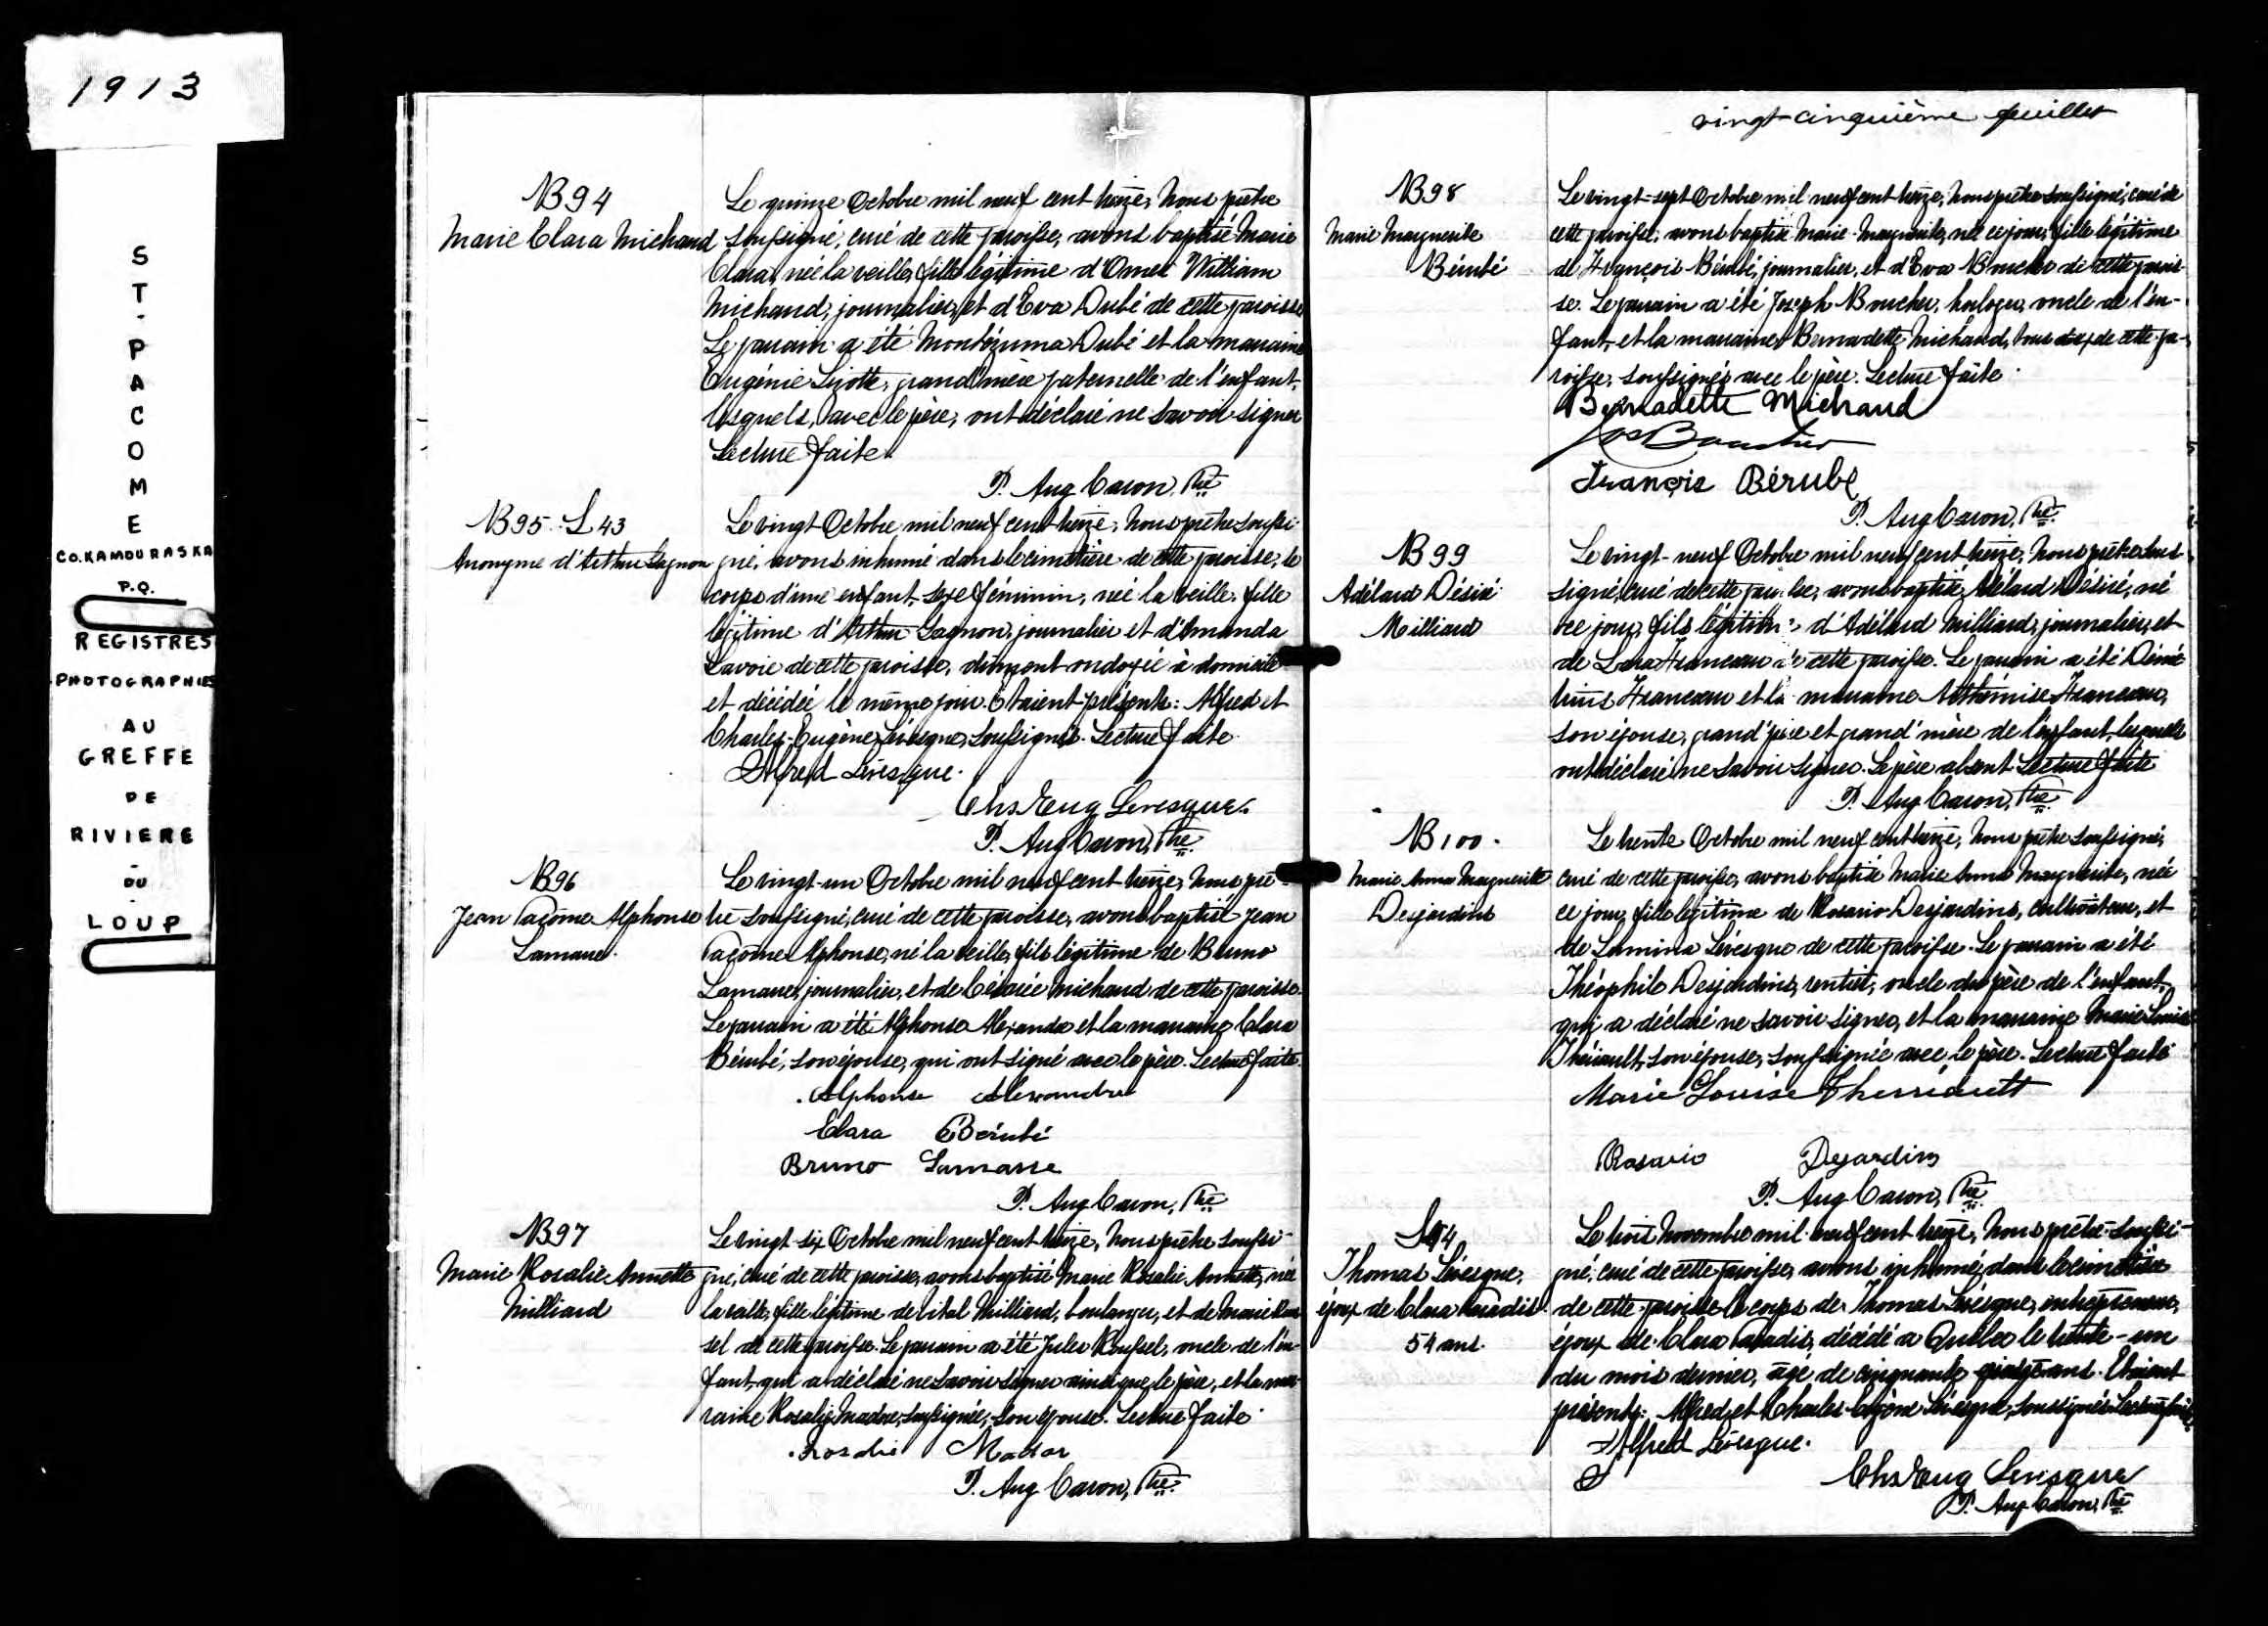 1913
ST-PACOME
CO. KAMOURASKA
P.Q.
REGISTRES
PHOTOGRAPHIES
AU
GREFFE
DE
RIVIERE
-
DU
-
LOUP
B94
Marie Clara Michaud
Le quinze Octobre mil neuf cent treize, Nous prêtre
soussigné, curé de cette paroisse, avons baptisé Marie
Clara, née la veille, fille légitime d'Omer William
Michaud, journalier, et d'Eva Dubé de cette paroisse
Le parrain a été Montézuma Dubé et la marraine
Eugénie Lizotte, grand'mère paternelle de l'enfant,
lesquels, avec le père, ont déclaré ne savoir signer
Lecture faite.
P. Aug Caron, Ptre
B95 - S43
Anonyme d'Arthur Gagnon
Le vingt Octobre mil neuf cent treize, Nous prêtre soussi-
gné, avons inhumé dans le cimetière de cette paroisse, le
corps d'une enfant, sexe féminin, née la veille, fille
légitime d'Arthur Gagnon, journalier et d'Amanda
Lavoie de cette paroisse, dûment ondoyée à domicile
et décédée le même jour. Etaient présents: Alfred et
Charles-Eugène Lévesque, soussignés. Lecture faite.
Alfred Lévesque.
Chs Eug Levesque.
P. Aug Caron, Ptre
B96
Jean Pacôme Alphonse
Lamarre.
Le vingt-un Octobre mil neuf cent treize, Nous prê-
tre soussigné, curé de cette paroisse, avons baptisé Jean
Pacôme Alphonse, né la veille, fils légitime de Bruno
Lamarre, journalier, et de Césarée Michaud de cette paroisse.
Le parrain a été Alphonse Alexandre et la marraine Clara
Bérubé, son épouse, qui ont signé avec le père. Lecture faite.
Alphonse Alexandre
Clara Bérubé
Bruno Lamarre
P. Aug Caron, Ptre
B97
Marie Rosalie Annette
Milliard
Le vingt-six Octobre mil neuf cent treize, Nous prêtre soussi-
gné, curé de cette paroisse, avons baptisé Marie Rosalie Annette, née
la veille, fille légitime de Vital Milliard, boulanger, et de Marie Rous-
sel de cette paroisse. Le parrain a été Jules Roussel, oncle de l'en-
fant, qui a déclaré ne savoir signer ainsi que le père, et la mar-
raine Rosalie Madore, soussignée, son épouse. Lecture faite.
Rosalie Mador
P. Aug Caron, Ptre
vingt-cinquième feuillet
B98
Marie Marguerite
Bérubé
Le vingt-sept Octobre mil neuf cent treize, Nous prêtre soussigné, curé de
cette paroisse, avons baptisé Marie-Marguerite, née ce jour, fille légitime
de François Bérubé, journalier, et d'Eva Boucher de cette parois-
se. Le parrain a été Joseph Boucher, horloger, oncle de l'en-
fant, et la marraine Bernadette Michaud, tous deux de cette pa-
roisse, soussignés avec le père. Lecture faite.
Bernadette Michaud
Jos Boucher
François Bérubé
P. Aug Caron, Ptre
B99
Adélard Désiré
Milliard
Le vingt-neuf Octobre mil neuf cent treize, Nous prêtre sous-
signé, curé de cette paroisse, avons baptisé Adélard Désiré, né
ce jour, fils légitime d'Adélard Milliard, journalier, et
de Franceau de cette paroisse. Le parrain a été
Franceau et la marraine Arthémise Franceau,
son épouse, grand'père et grand'mère de l'enfant, lesquels
ont déclaré ne savoir signer. Le père absent. Lecture faite
P. Aug Caron, Ptre
B100.
Marie Anna Marguerite
Desjardins
Le trente Octobre mil neuf cent treize, Nous prêtre soussigné,
curé de cette paroisse, avons baptisé Marie Anna Marguerite, née
ce jour, fille légitime de Rosario Desjardins, cultivateur, et
de Lumina Lévesque de cette paroisse. Le parrain a été
Théophile Desjardins, rentier, oncle du père de l'enfant,
qui a déclaré ne savoir signer, et la marraine Marie Louise
Thériault, son épouse, soussignée avec le père. Lecture faite
Marie Louise Therriault
Rosario Dejardins
P. Aug Caron, Ptre
S44
Thomas Lévesque,
époux de Clara Paradis
54 ans.
Le trois Novembre mil neuf cent treize, Nous prêtre soussi-
gné, curé de cette paroisse, avons inhumé dans le cimetière
de cette paroisse le corps de Thomas Lévesque, entrepreneur,
époux de Clara Paradis, décédé à Québec le trente-un
du mois dernier, âgé de cinquante-quatre ans. Etaient
présents: Alfred et Charles-Eugène Lévesque, soussignés. Lecture faite.
Alfred Lévesque.
Chs Eug Levesque
P. Aug Caron, Ptre